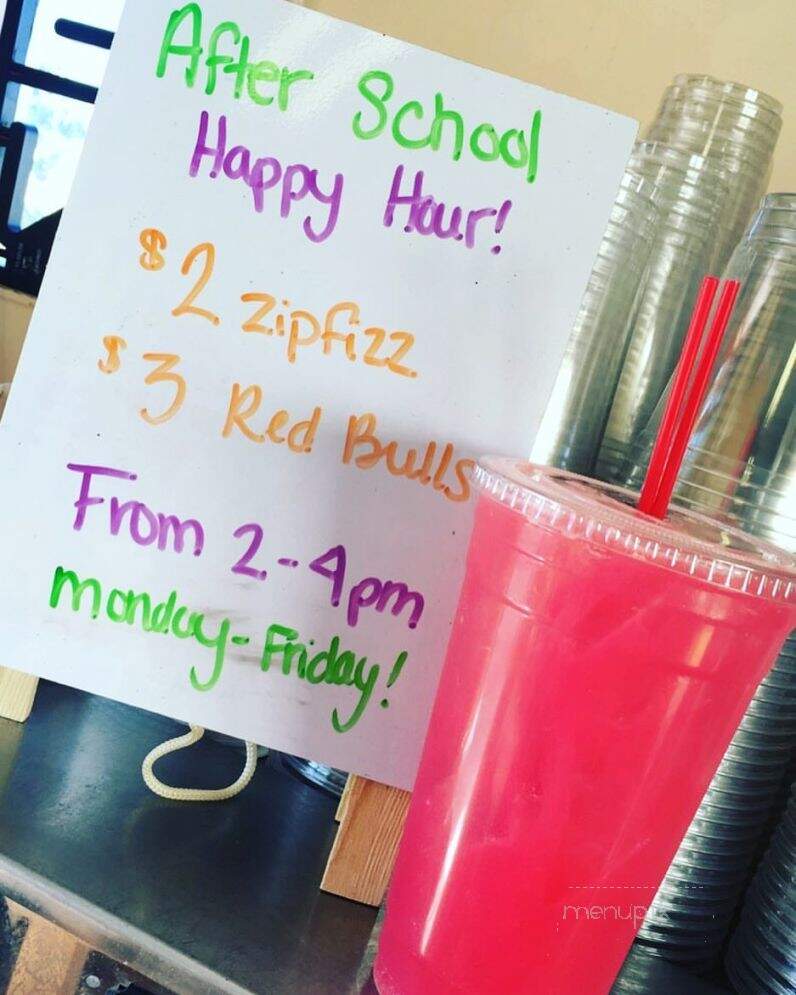 After School
Happy Hour!
$2 zipfizz
$3 Red Bulls
From 2-4pm
monday-Friday!